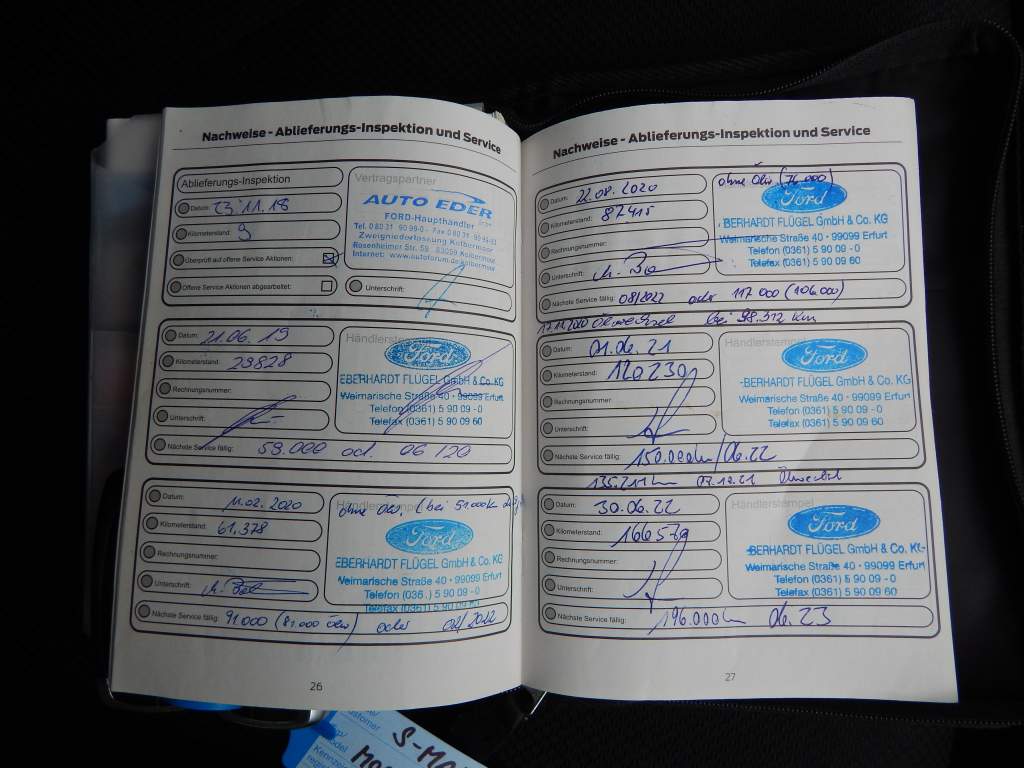 Nachweise - Ablieferungs-Inspektion und Service
Ablieferungs-Inspektion
Datum: 23.11.18
Kilometerstand: 9
Überprüft auf offene Service Aktionen:
Offene Service Aktionen abgearbeitet:
Vertragspartner
AUTO EDER
FORD-Haupthändler
Tel. 0 80 31 90 99-0 Fax 0 80 31
Zweigniederlassung Kolbermoor
Rosenheimer Str. 59, 83059 Kolbermoor
Internet: www.autoforum.de/kolbermoor
Unterschrift:
Datum: 21.06.19
Kilometerstand: 29828
Rechnungsnummer:
Unterschrift:
Händlerstempel
Ford
EBERHARDT FLÜGEL GmbH & Co. KG
Weimarische Straße 40 · 99099 Erfurt
Telefon (0361) 5 90 09 - 0
Telefax (0361) 5 90 09 60
Nächste Service fällig: 59.000 od. 06/20
Datum: 11.02.2020
Kilometerstand: 61.378
Rechnungsnummer:
Unterschrift:
Händlerstempel
ohne Ölw. (bei 51.000km
Ford
EBERHARDT FLÜGEL GmbH & Co. KG
Weimarische Straße 40 · 99099 Erfurt
Telefon (036.) 5 90 09 - 0
Telefax (0361) 5 90 09 60
Nächste Service fällig: 91.000 (81.000 Ölw) oder 02/2022
26
Nachweise - Ablieferungs-Inspektion und Service
Datum: 22.08.2020
Kilometerstand: 87415
Rechnungsnummer:
Unterschrift:
ohne Ölw (76.000)
Ford
BERHARDT FLÜGEL GmbH & Co. KG
Weimarische Straße 40 · 99099 Erfurt
Telefon (0361) 5 90 09 - 0
Telefax (0361) 5 90 09 60
Nächste Service fällig: 08/2022 oder 117 000 (106.000)
17.11.2020 Ölwechsel bei 98.312 km
Datum: 01.06.21
Kilometerstand: 120230
Rechnungsnummer:
Unterschrift:
Händlerstempel
Ford
-BERHARDT FLÜGEL GmbH & Co. KG
Weimarische Straße 40 · 99099 Erfurt
Telefon (0361) 5 90 09 - 0
Telefax (0361) 5 90 09 60
Nächste Service fällig: 150.000km/06.22
135.211km 07.12.21 Ölwechsel
Datum: 30.06.22
Kilometerstand:
Rechnungsnummer:
Unterschrift:
Händlerstempel
Ford
-BERHARDT FLÜGEL GmbH & Co. KG
Weimarische Straße 40 · 99099 Erfurt
Telefon (0361) 5 90 09 - 0
Telefax (0361) 5 90 09 60
Nächste Service fällig: 196.000km 06.23
27
S-MA